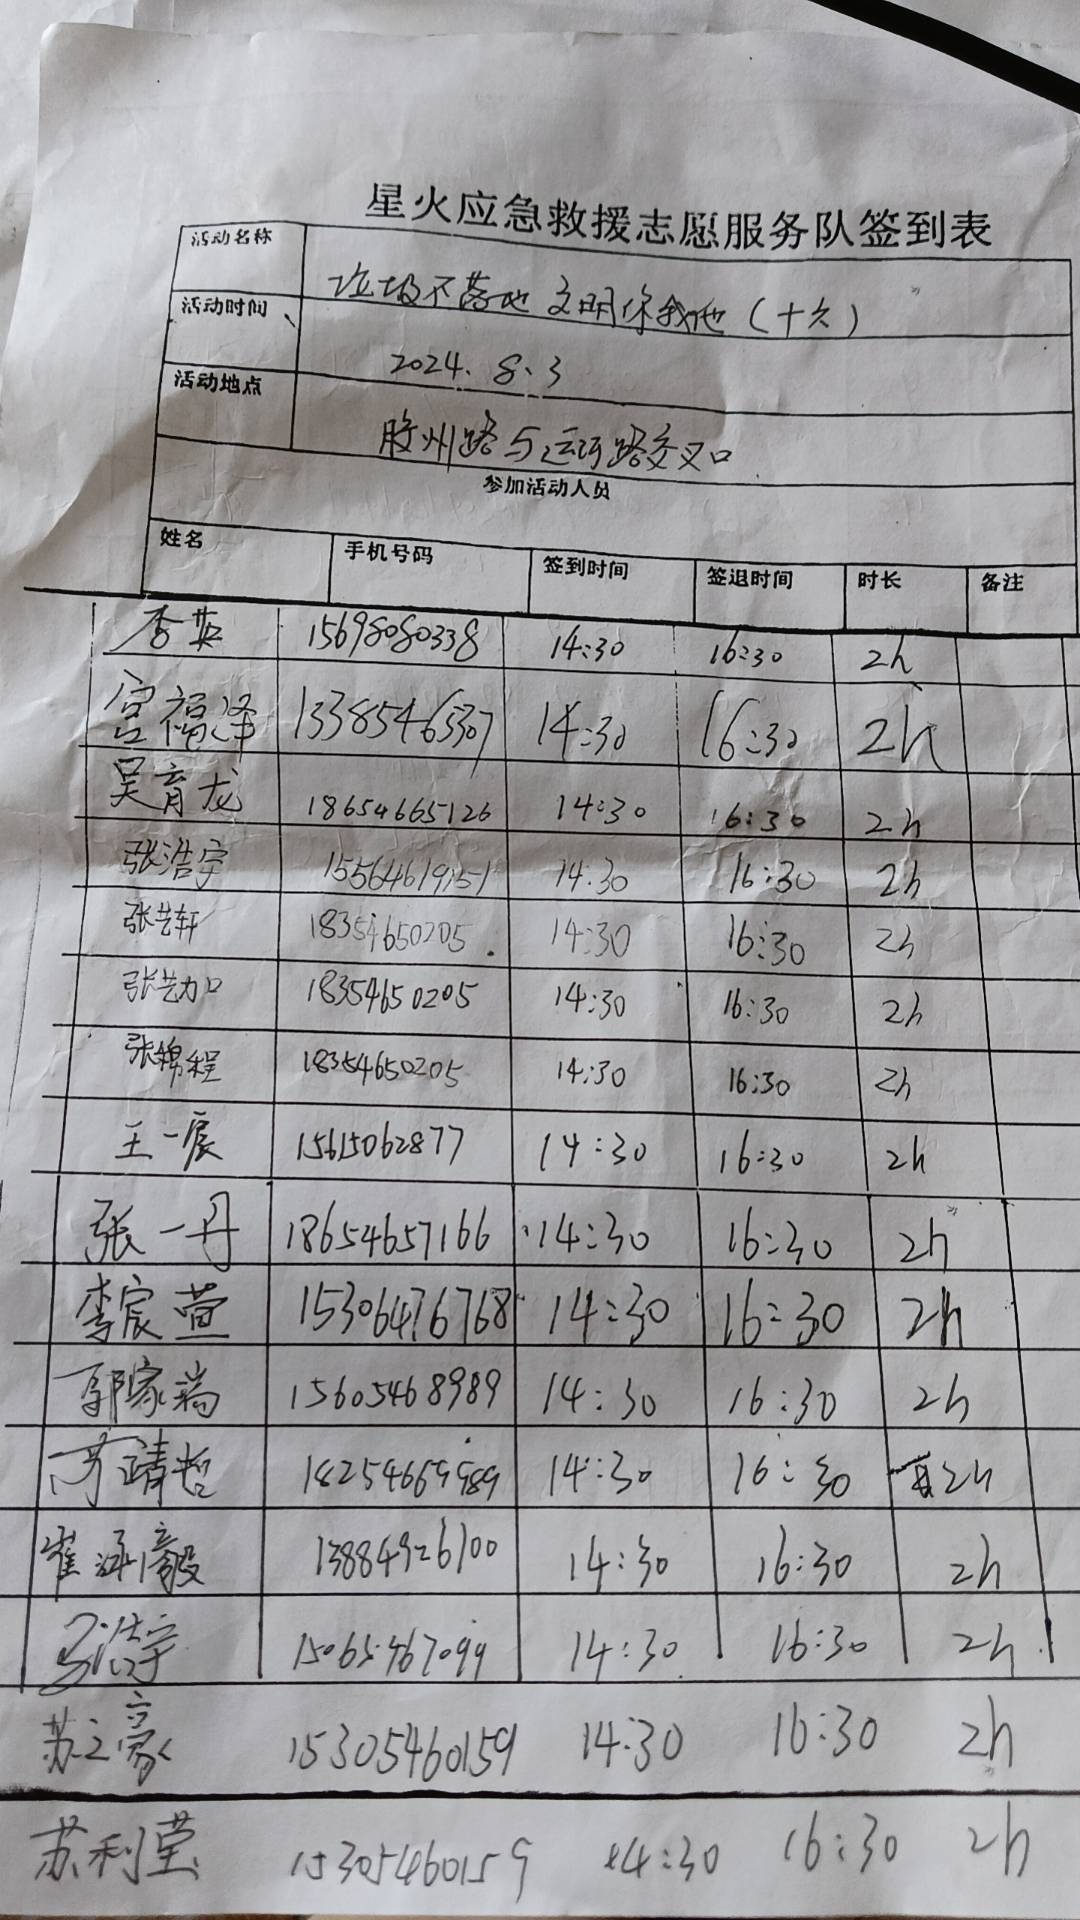 星火应急救援志愿服务队签到表
活动名称 垃圾不落地 文明你我他（十六）
活动时间 2024.8.3
活动地点 胶州路与运河路交叉口
参加活动人员
姓名 手机号码 签到时间 签退时间 时长 备注
李英 15698080338 14:30 16:30 2h
宫福泽 13385465307 14:30 16:30 2h
吴育龙 18654665126 14:30 16:30 2h
张浩宇 14:30 16:30 2h
张艺轩 18354650205 14:30 16:30 2h
张艺加 18354650205 14:30 16:30 2h
张锦程 18354650205 14:30 16:30 2h
王一宸 15615062877 14:30 16:30 2h
张一丹 18654657166 14:30 16:30 2h
李宸萱 15306476768 14:30 16:30 2h
郭家瑞 15605468989 14:30 16:30 2h
靖哲 18254669989 14:30 16:30 2h
崔 毅 13884926100 14:30 16:30 2h
浩宇 15065467099 14:30 16:30 2h
苏之豪 15305460159 14:30 16:30 2h
苏利莹 15305460159 14:30 16:30 2h